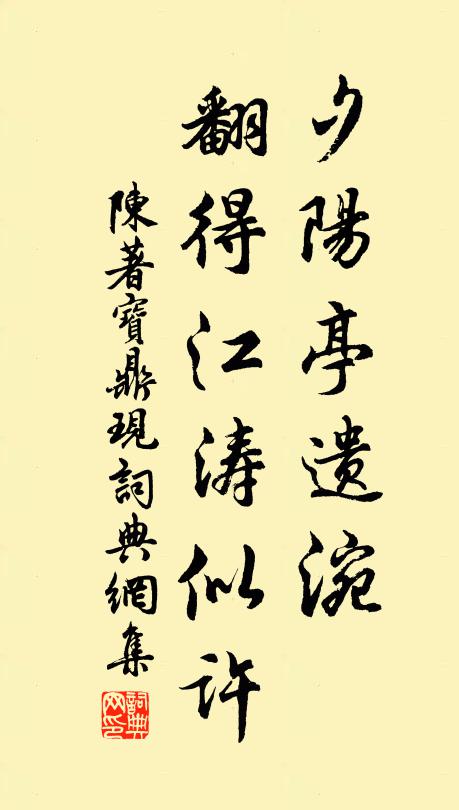 夕陽亭遺涴
翻得江濤似許
陳著寶鼎現詞典網集
詞典網印